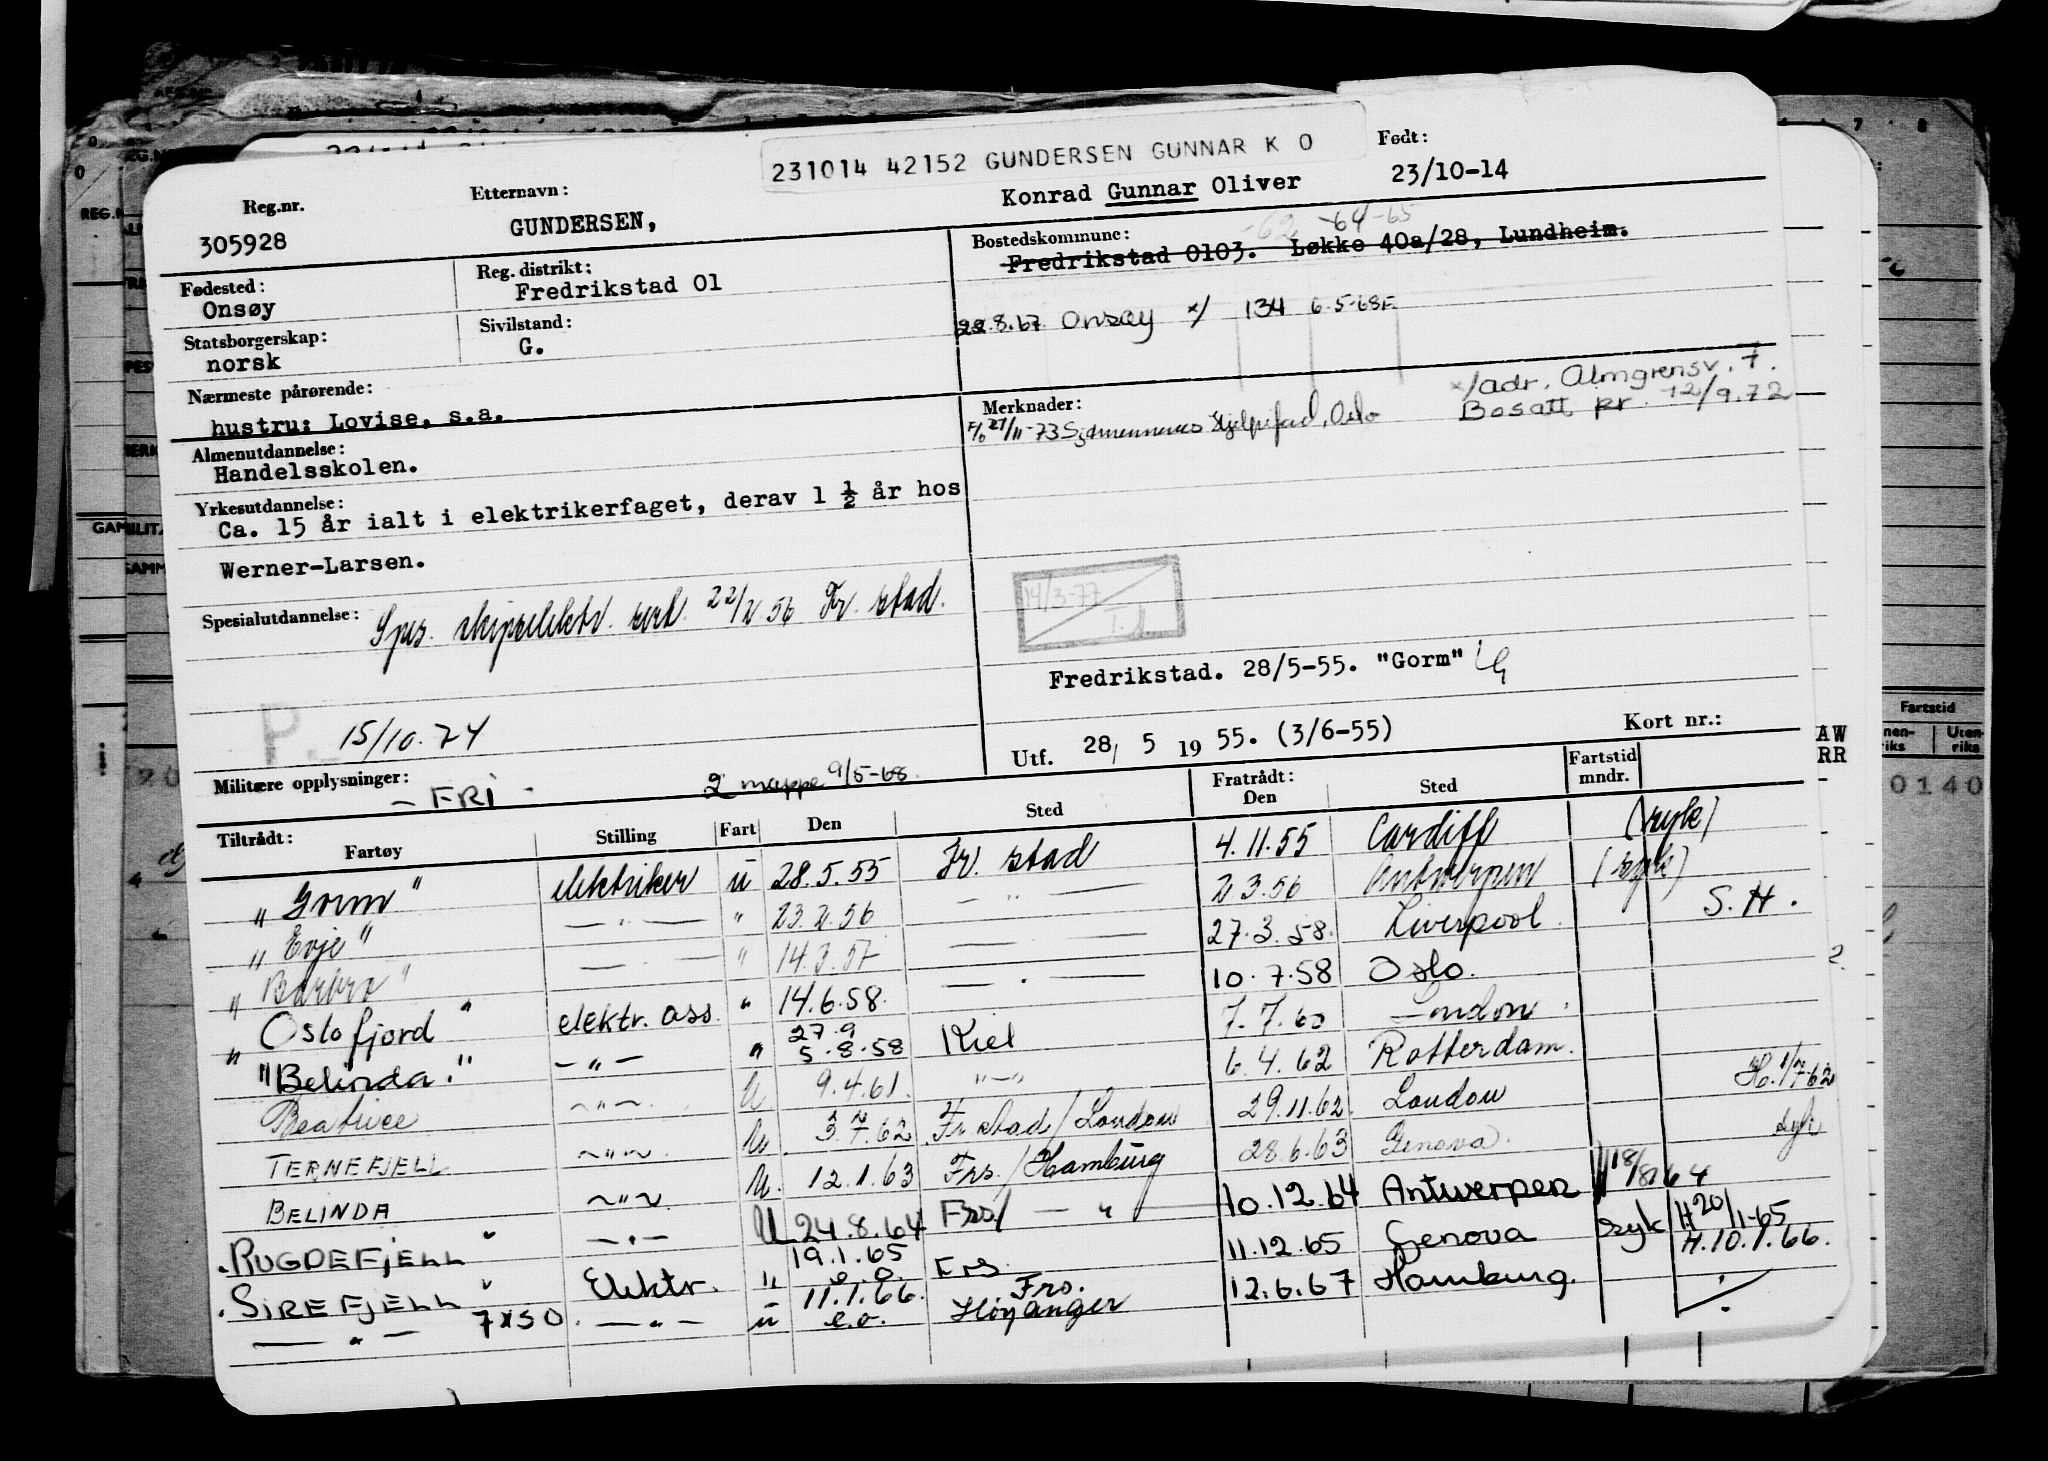 231014 42152 GUNDERSEN GUNNAR K O
Reg.nr. Etternavn: Født:
305928 GUNDERSEN, Konrad Gunnar Oliver 23/10-14
-62 -64-65
Fødested: Reg. distrikt: Bostedskommune:
Onsøy Fredrikstad 01 Fredrikstad 0103. Løkke 40a/28, Lundheim.
Statsborgerskap: Sivilstand:
norsk G. 22.8.67 Onsøy x/ 134 6.5-68F.
Nærmeste pårørende: Merknader: x/adr. Almgrensv. 7.
hustru: Lovise, s.a. F/o 27/11-73 Sjømennenes Hjelpefond, Oslo Bosatt pr. 12/9.72
Almenutdannelse:
Handelsskolen.
Yrkesutdannelse:
Ca. 15 år ialt i elektrikerfaget, derav 1 ½ år hos
Werner-Larsen.
Spesialutdannelse: Spes. skipselektr. sert. 22/2 56 Fr. stad.
14/3-77
Fredrikstad. 28/5-55. "Gorm"
P. 15/10.74
Utf. 28, 5 1955. (3/6-55) Kort nr.:
Militære opplysninger: - FRI - 2 mappe 9/5-68.
Tiltrådt: Fratrådt: Fartstid
Fartøy Stilling Fart Den Sted Den Sted mndr.
"Gorm" elektriker u 28.5.55 Fr. stad 4.11.55 Cardiff (syk)
"Evje" — " — " 23.2.56 — " — 2.3.56 Antwerpen (syk)
"Barbro" — — " 14.3.57 — — 27.3.58. Liverpool. S.H.
"Oslofjord" elektr. ass. " 14.6.58. — . — 10.7.58 Oslo.
27.9
"Belinda." — " — " 5.8.58 Kiel 7.7.60 London
Beatrice — " — U 9.4.61. " — " 6.4.62 Rotterdam. H. 1/7-62
TERNEFJELL — " — U. 3.7.62 Fr.stad/London 29.11.62. London syk
BELINDA — " — U. 12.1.63 Frs./Hamburg 28.6.63 Genova.
RUGDEFJELL " — " — U 24.8.64 Frs/ — " — 10.12.64 Antwerpen H 18/8 64
19.1.65
SIREFJELL " Elektr. " e.o. Frs. 11.12.65 Genova syk H 20/1-65
11.1.66. Frs. H.10.1.66.
— " — 7x50 — " — u e.o. Høyanger 12.6.67 Hamburg.
Fartstid
0140